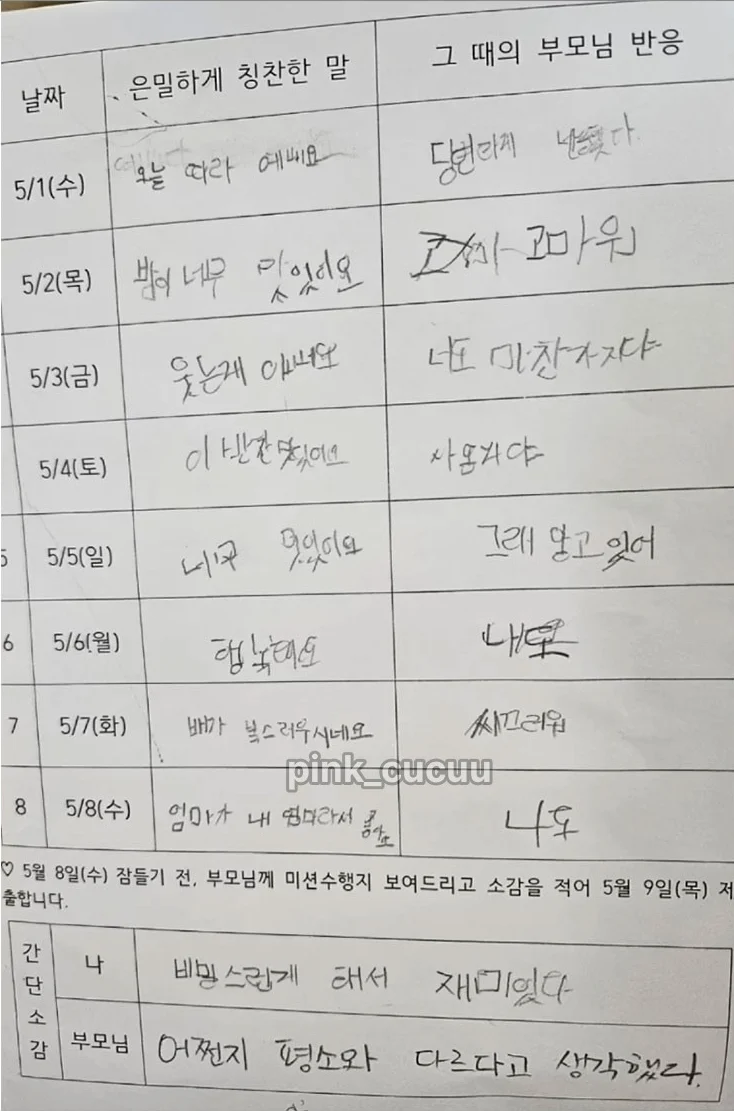 날짜 은밀하게 칭찬한 말 그 때의 부모님 반응
5/1(수) 오늘 따라 예뻐요
5/2(목) 밥이 너무 맛있어요 고마워
5/3(금) 웃는게 이쁘네요 너도 마찬가지야
5/4(토) 이 반찬 맛있어요
5 5/5(일) 멋있어요 그래 알고 있어
6 5/6(월) 행복해요 나도
7 5/7(화) 배가 복스러우시네요 씨끄러워
8 5/8(수) 엄마가 내 엄마라서 좋아요 나도
pink_cucuu
♡ 5월 8일(수) 잠들기 전, 부모님께 미션수행지 보여드리고 소감을 적어 5월 9일(목) 제
출합니다.
간단소감
나 비밀스럽게 해서 재미있다
부모님 어쩐지 평소와 다르다고 생각했다.